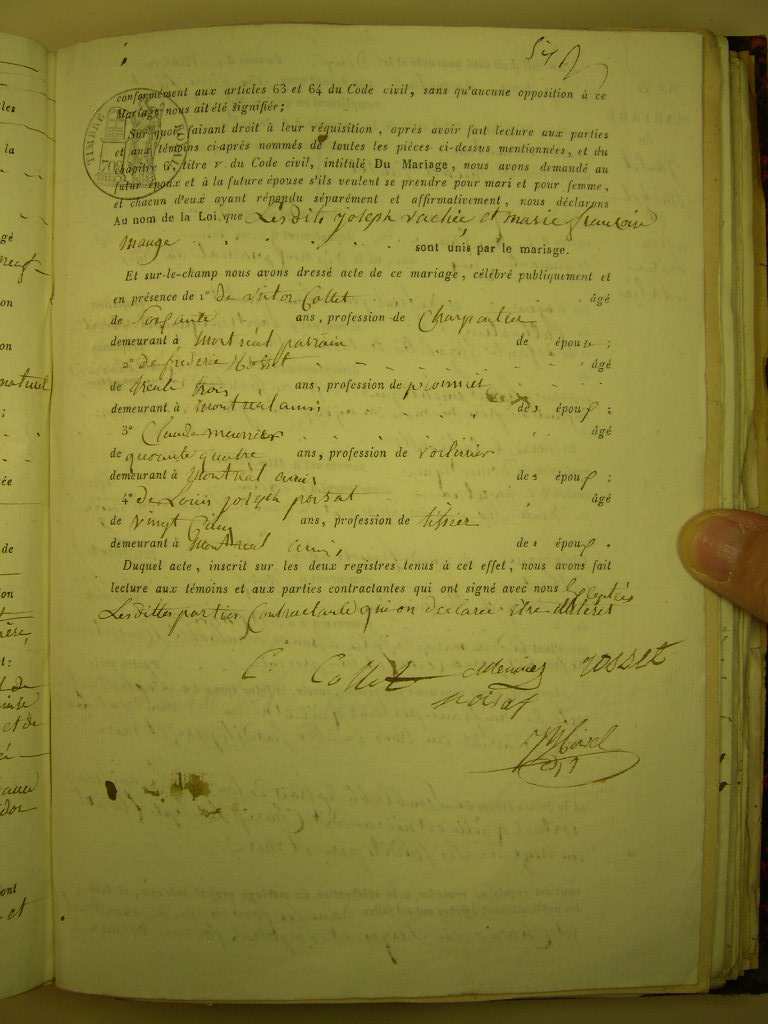 conformément aux articles 63 et 64 du Code civil, sans qu'aucune opposition à ce
Mariage nous ait été signifier;
Sur quoi, faisant droit à leur réquisition, après avoir fait lecture aux parties
et aux témoins ci-après nommés de toutes les pièces ci-dessus mentionnées, et du
chapitre 6, titre v du Code civil, intitulé Du Mariage, nous avons demandé au
futur époux et à la future épouse s'ils veulent se prendre pour mari et pour femme,
et chacun d'eux ayant répondu séparément et affirmativement, nous déclarons
Au nom de la Loi, que Les dits joseph vachée et marie françoise
mauge sont unis par le mariage.
Et sur-le-champ nous avons dressé acte de ce mariage, célébré publiquement et
en présence de 1° de victor Collet âgé
de soixante ans, profession de Charpentier
demeurant à montréal parrain de épou ;
2° de frederic âgé
de trente trois ans, profession de
demeurant à montréal amis des époux ;
3° Claude meunier âgé
de quarante quatre ans, profession de voiturier
demeurant à montréal amis des époux ;
4° de Louis joseph poisat âgé
de vingt cinq ans, profession de tissier
demeurant à montréal amis, des époux .
Duquel acte, inscrit sur les deux registres tenus à cet effet, nous avons fait
lecture aux témoins et aux parties contractantes qui ont signé avec nous
Les dittes parties Contractante qui on declarée être
C. Collet Meunier rosset
poisat